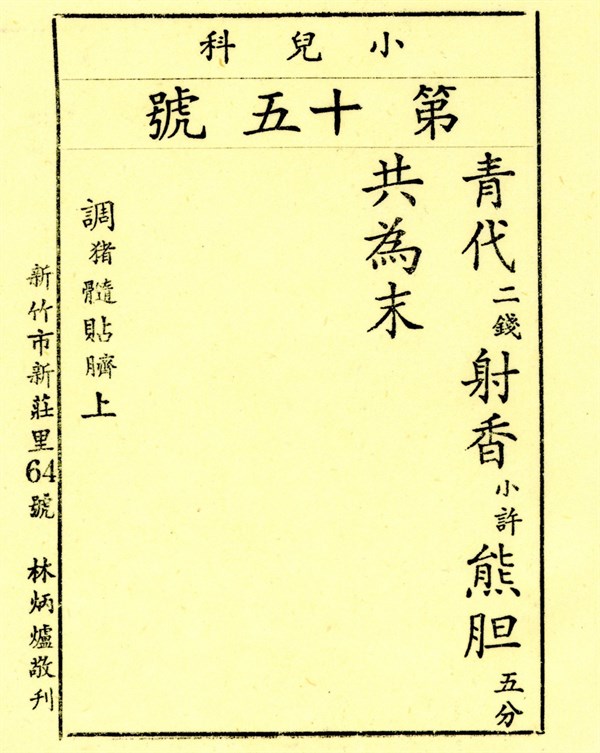 小兒科
第十五號
青代二錢射香小許熊胆五分
共為末
調猪髓貼臍上
新竹市新莊里64號 林炳爐敬刋